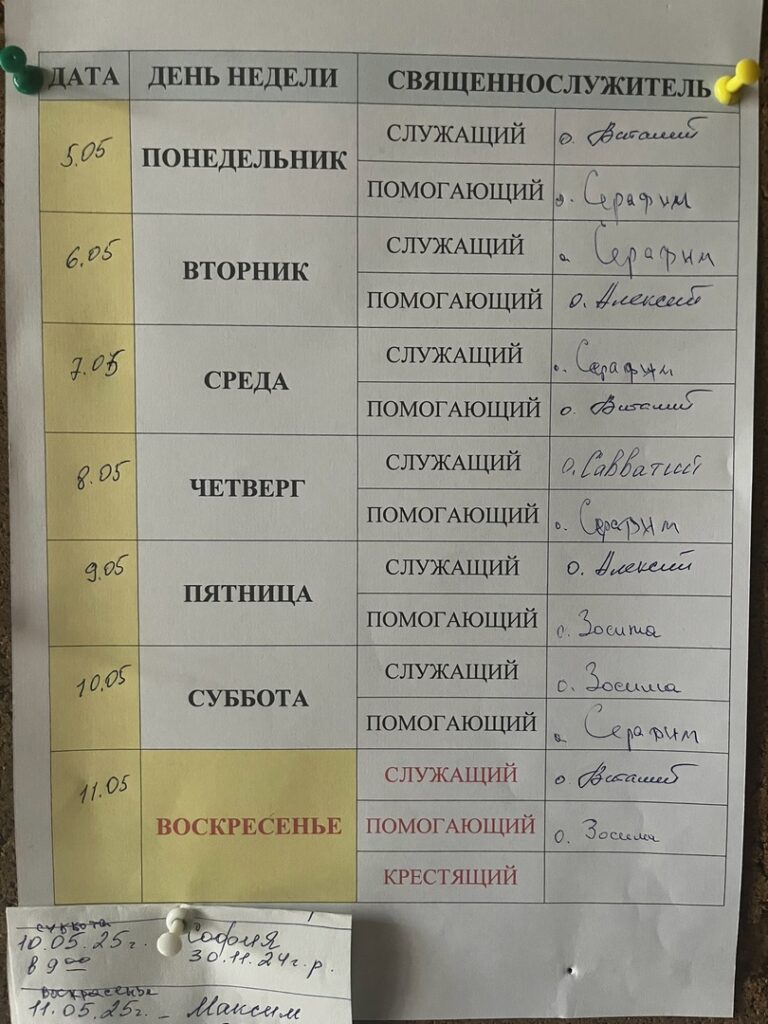 ДАТА ДЕНЬ НЕДЕЛИ СВЯЩЕННОСЛУЖИТЕЛЬ
5.05 ПОНЕДЕЛЬНИК СЛУЖАЩИЙ о. Виталий
ПОМОГАЮЩИЙ о. Серафим
6.05 ВТОРНИК СЛУЖАЩИЙ о. Серафим
ПОМОГАЮЩИЙ о. Алексий
7.05 СРЕДА СЛУЖАЩИЙ о. Серафим
ПОМОГАЮЩИЙ о. Виталий
8.05 ЧЕТВЕРГ СЛУЖАЩИЙ о. Савватий
ПОМОГАЮЩИЙ о. Серафим
9.05 ПЯТНИЦА СЛУЖАЩИЙ о. Алексий
ПОМОГАЮЩИЙ о. Зосима
10.05 СУББОТА СЛУЖАЩИЙ о. Зосима
ПОМОГАЮЩИЙ о. Серафим
11.05 ВОСКРЕСЕНЬЕ СЛУЖАЩИЙ о. Виталий
ПОМОГАЮЩИЙ о. Зосима
КРЕСТЯЩИЙ
суббота
10.05.25г. София
в 9 00 30.11.24г.р.
воскресенье
11.05.25г. - Максим